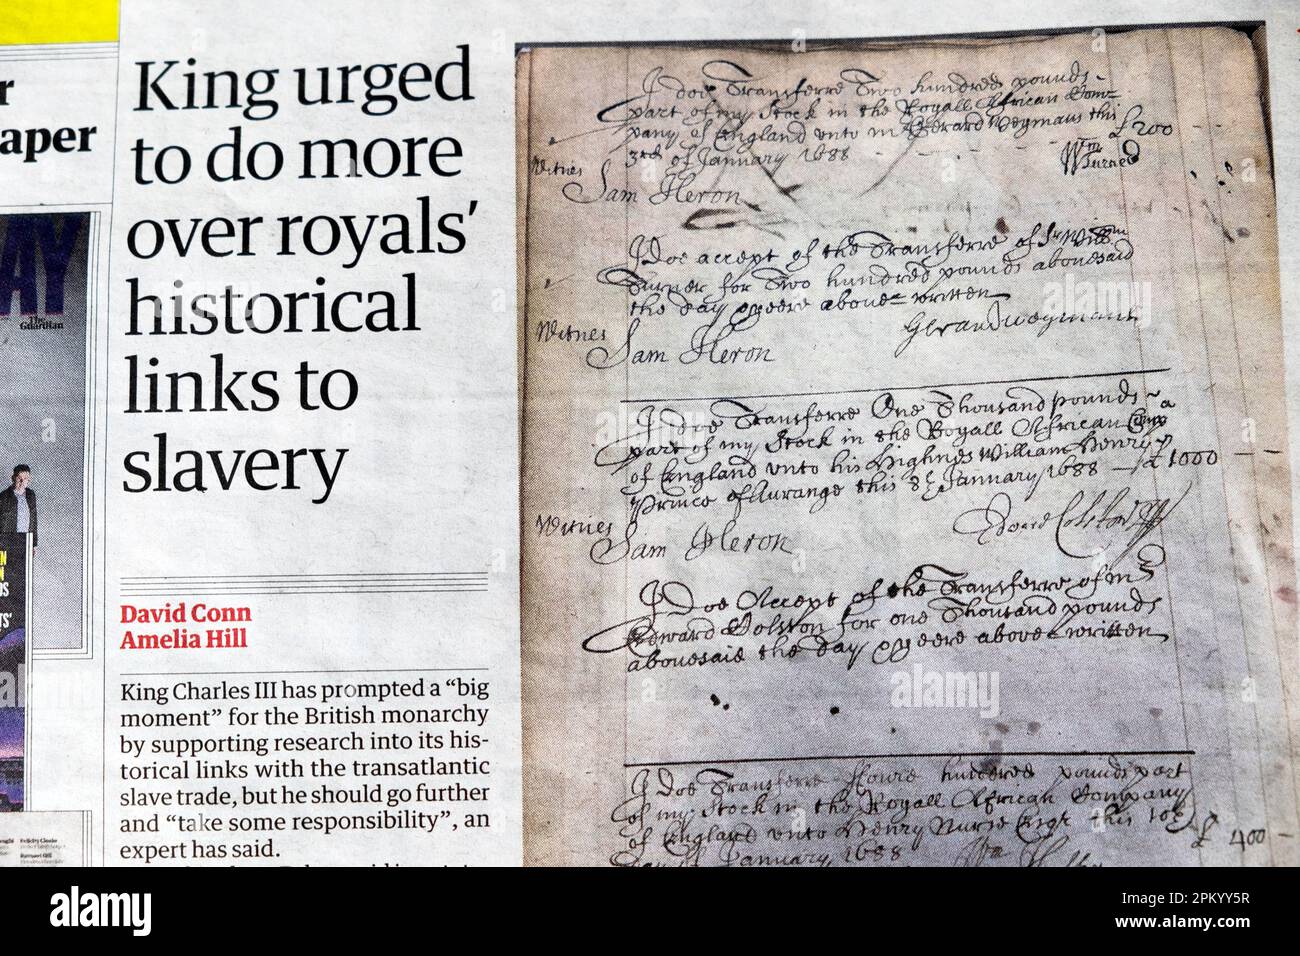 r
aper
AY
The
Guardian
King urged
to do more
over royals’
historical
links to
slavery
David Conn
Amelia Hill
King Charles III has prompted a “big
moment” for the British monarchy
by supporting research into its his-
torical links with the transatlantic
slave trade, but he should go further
and “take some responsibility”, an
expert has said.
I doe Transferre Two hundred pounds
part of my Stock in the Royall African Com=
pany of England unto m Gerard Weymans this
3rd of January 1688 £ 200
Wm Turner
Witnes
Sam Heron
I Doe accept of the Transferre of Mr Willm
Turner for Two hundred pounds abouesaid
the day & yeere aboue written
Witnes
Sam Heron
I doe Transferre One Thousand pounds
part of my Stock in the Royall African Comp a
of England unto his Highnes William Henry
Prince of Aurange this 8th January 1688 £ 1000
Witnes
Sam Heron
Edward Colston
I Doe Accept of the Transferre of Mr
Edward Colston for one Thousand pounds
abouesaid the day & yeere aboue written
I doe Transferre floure hundred pounds part
of my Stock in the Royall African Company
of England unto Henry Nurse Esqr this 10th £ 400
January, 1688
alamy
Image ID: 2PKYY5R
www.alamy.com